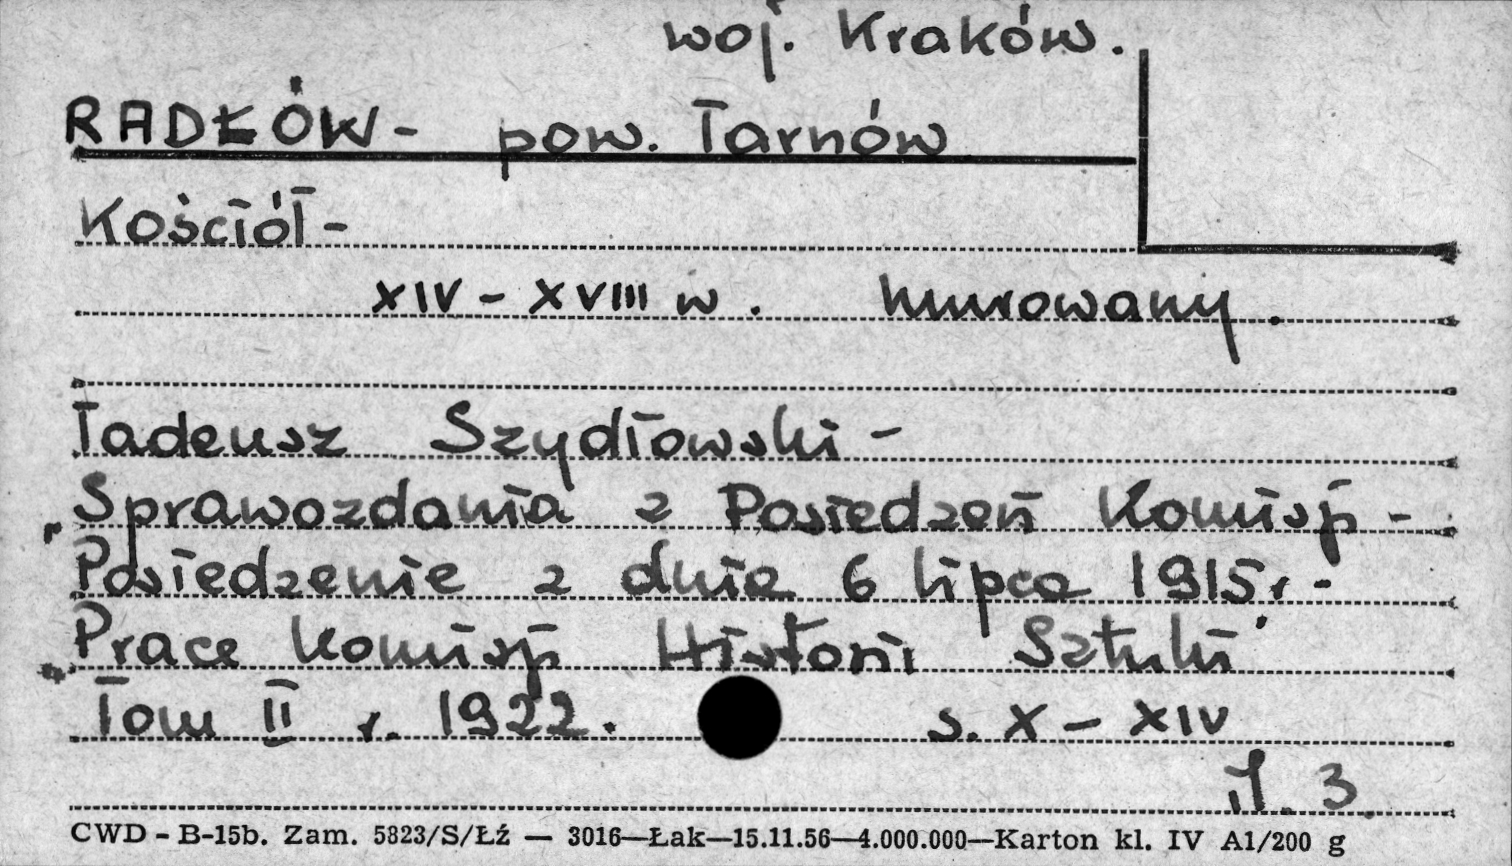 woj. Kraków.
RADŁÓW - pow. Tarnów
Kościół -
XIV - XVIII w. murowany.
Tadeusz Szydłowski -
Sprawozdania z Posiedzeń Komisji -
Posiedzenie z dnia 6 lipca 1915 r -
„Prace Komisji Historii Sztuki"
Tom II r. 1922. s. X - XIV
il. 3
CWD - B-15b. Zam. 5823/S/Łź — 3016—Łak—15.11.56—4.000.000—Karton kl. IV A1/200 g